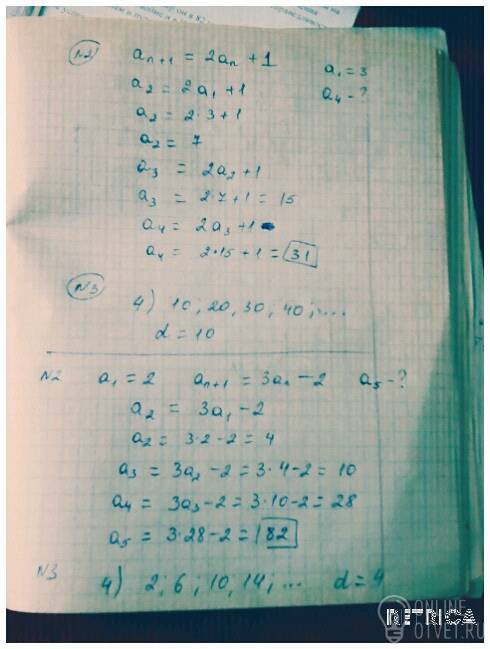 N2
a_{n+1} = 2a_n + 1    a_1 = 3
a_2 = 2a_1 + 1    a_4 - ?
a_2 = 2·3 + 1
a_2 = 7
a_3 = 2a_2 + 1
a_3 = 2·7 + 1 = 15
a_4 = 2a_3 + 1
a_4 = 2·15 + 1 = 31
N3
4) 10; 20, 30, 40; ...
d = 10
N2  a_1 = 2    a_{n+1} = 3a_n - 2    a_5 - ?
a_2 = 3a_1 - 2
a_2 = 3·2 - 2 = 4
a_3 = 3a_2 - 2 = 3·4 - 2 = 10
a_4 = 3a_3 - 2 = 3·10 - 2 = 28
a_5 = 3·28 - 2 = 82
N3  4) 2; 6; 10, 14; ...    d = 4
RETRICA
ONLINE
OTVET.RU